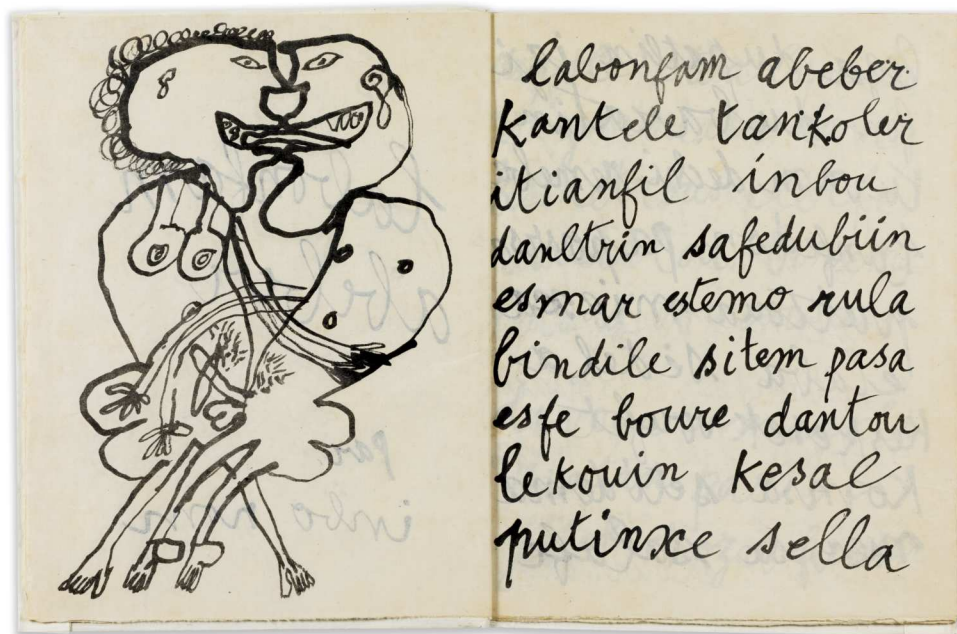 labonfam abeber
kantele tankoler
itianfil inbou
danltrin safedubiin
esmar estemo rula
bindile sitem pasa
esfe boure dantou
lekouin kesal
putinxe sella